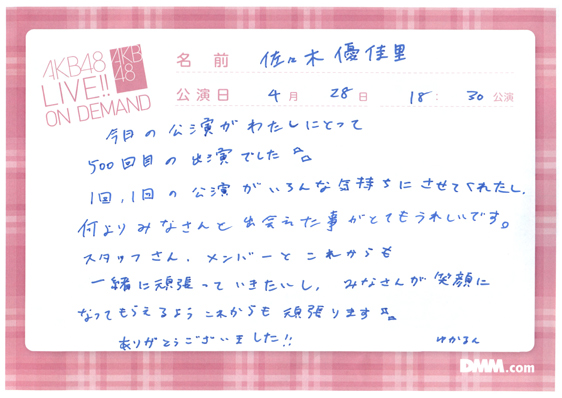 AKB48
LIVE!!
ON DEMAND
AKB
48
名前 佐々木優佳里
公演日 4月 28日 18:30公演
今日の公演がわたしにとって
500回目の出演でした
1回,1回の公演がいろんな気持ちにさせてくれたし,
何よりみなさんと出会えた事がとてもうれしいです。
スタッフさん.メンバーとこれからも
一緒に頑張っていきたいし,みなさんが笑顔に
なってもらえるようこれからも頑張ります
ありがとうございました!!
ゆかるん
DMM.com